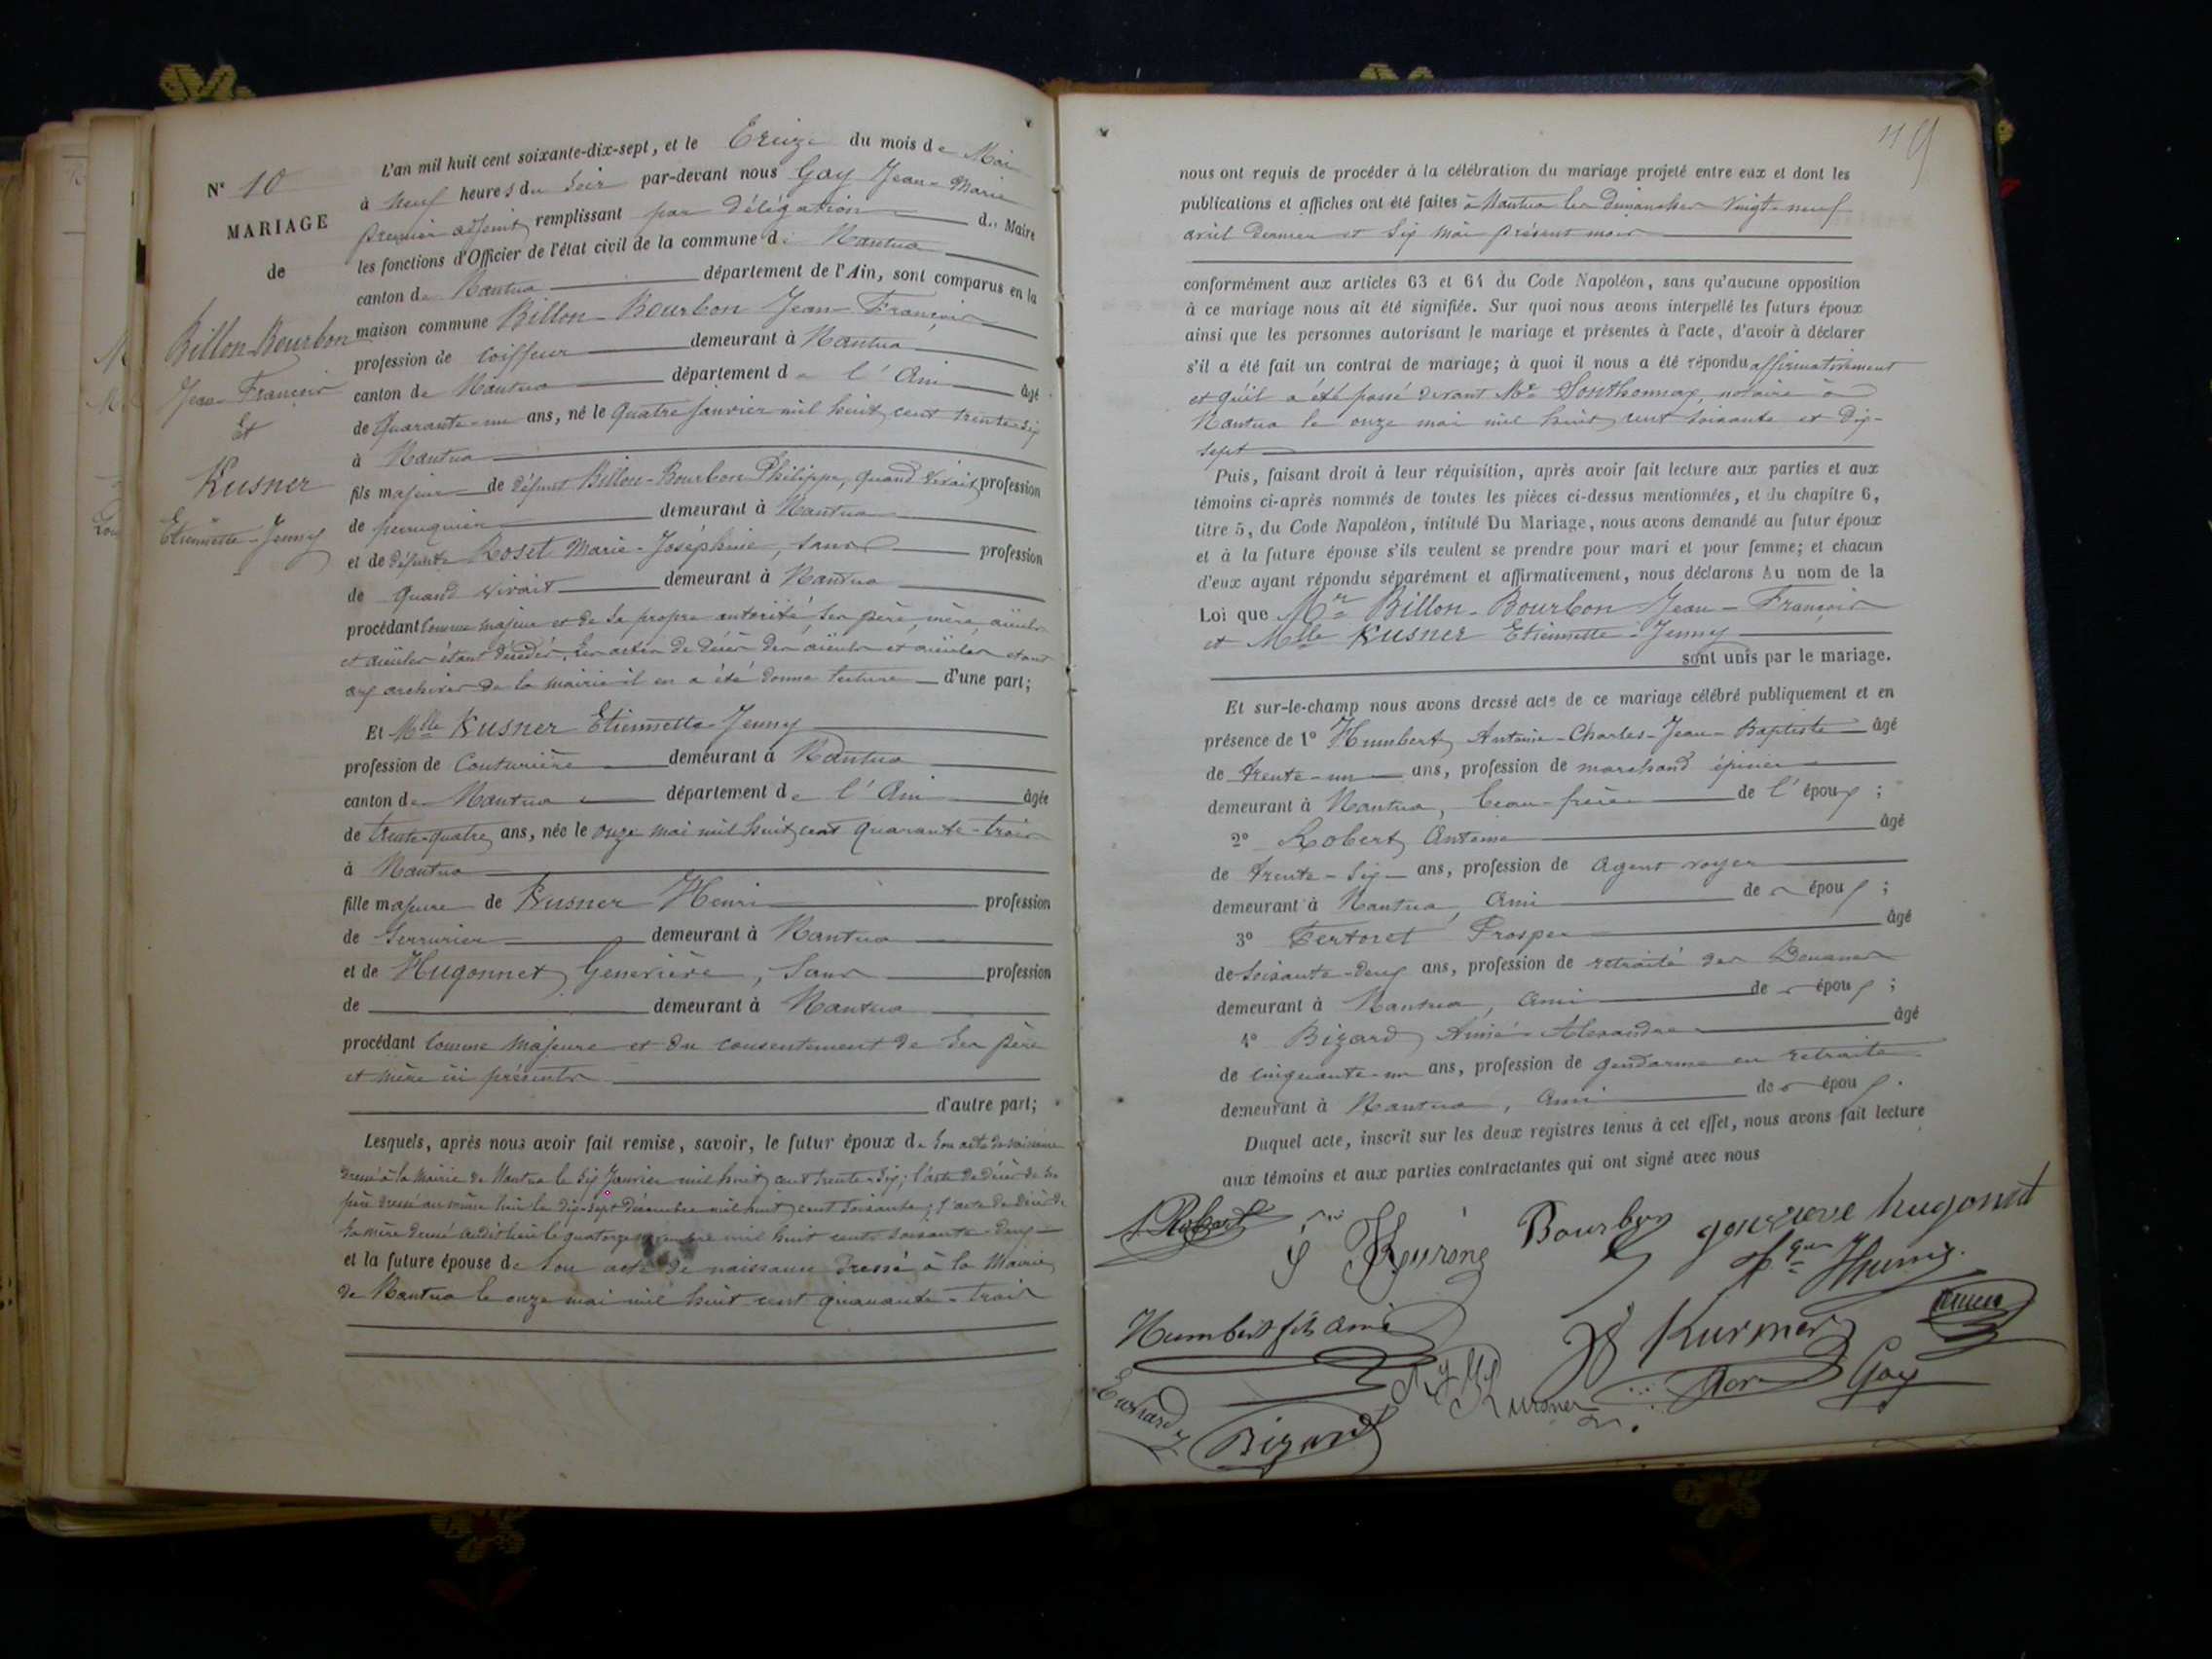 N° 10
MARIAGE
de
Billon-Bourbon
Jean-François
Et
Kusner
Etiennette-Jenny
L'an mil huit cent soixante-dix-sept, et le Treize du mois de Mai
à neuf heures du soir par-devant nous Gay Jean-Marie
premier adjoint remplissant par délégation du Maire
les fonctions d'Officier de l'état civil de la commune de Nantua
canton de Nantua département de l'Ain, sont comparus en la
maison commune Billon-Bourbon Jean-François
profession de coiffeur demeurant à Nantua
canton de Nantua département de l'Ain âgé
de Quarante-un ans, né le quatre janvier mil huit cent trente-six
à Nantua
fils majeur de défunt Billon-Bourbon Philippe, quand vivait profession
de perruquier demeurant à Nantua
et de défunte Roset Marie-Joséphine, sans profession
de quand vivait demeurant à Nantua
procédant comme majeur et de sa propre autorité, ses père, mère, aïeuls
et aïeules étant décédés, les actes de décès des aïeuls et aïeules étant
aux archives de la mairie il en a été donné lecture d'une part;
Et Mlle Kusner Etiennette-Jenny
profession de Couturière demeurant à Nantua
canton de Nantua département de l'Ain âgée
de trente-quatre ans, née le onze mai mil huit cent quarante-trois
à Nantua
fille majeure de Kusner Henri profession
de Serrurier demeurant à Nantua
et de Hugonnet Geneviève, sans profession
de demeurant à Nantua
procédant comme majeure et du consentement de ses père
et mère ici présents
d'autre part;
Lesquels, après nous avoir fait remise, savoir, le futur époux de son acte de naissance
dressé à la mairie de Nantua le six Janvier mil huit cent trente-six; l'acte de décès de son
père dressé au même lieu le dix-sept Décembre mil huit cent soixante; l'acte de décès de
sa mère dressé audit lieu le quatorze mil huit cent soixante-deux
et la future épouse de son acte de naissance dressé à la Mairie
de Nantua le onze mai mil huit cent quarante-trois
119
nous ont requis de procéder à la célébration du mariage projeté entre eux et dont les
publications et affiches ont été faites à Nantua les dimanches vingt-neuf
avril dernier et six mai présent mois
conformément aux articles 63 et 64 du Code Napoléon, sans qu'aucune opposition
à ce mariage nous ait été signifiée. Sur quoi nous avons interpellé les futurs époux
ainsi que les personnes autorisant le mariage et présentes à l'acte, d'avoir à déclarer
s'il a été fait un contrat de mariage; à quoi il nous a été répondu affirmativement
et qu'il a été passé devant Me Sonthonnax, notaire à
Nantua le onze mai mil huit cent soixante et dix-
sept
Puis, faisant droit à leur réquisition, après avoir fait lecture aux parties et aux
témoins ci-après nommés de toutes les pièces ci-dessus mentionnées, et du chapître 6,
titre 5, du Code Napoléon, intitulé Du Mariage, nous avons demandé au futur époux
et à la future épouse s'ils veulent se prendre pour mari et pour femme; et chacun
d'eux ayant répondu séparément et affirmativement, nous déclarons Au nom de la
Loi que Mr Billon-Bourbon Jean-François
et Mlle Kusner Etiennette-Jenny
sont unis par le mariage.
Et sur-le-champ nous avons dressé acte de ce mariage célébré publiquement et en
présence de 1° Humbert Antoine-Charles-Jean-Baptiste âgé
de trente-un ans, profession de marchand épicier
demeurant à Nantua, beau-frère de l'époux;
2° Robert Antoine âgé
de trente-six ans, profession de agent voyer
demeurant à Nantua, ami de époux;
3° Tertoret Prosper âgé
de soixante-deux ans, profession de retraité des Douanes
demeurant à Nantua, ami de époux;
4° Bizard Aimé-Alexandre âgé
de cinquante-un ans, profession de gendarme en retraite
demeurant à Nantua, ami de époux.
Duquel acte, inscrit sur les deux registres tenus à cet effet, nous avons fait lecture
aux témoins et aux parties contractantes qui ont signé avec nous
Robert Bourbon genevieve hugonet
Humbert fils aîné Kusner
Kusner Gay
Bizard